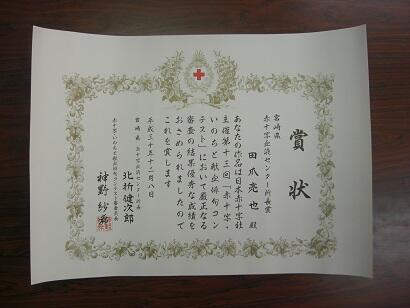 賞状
宮崎県
赤十字血液センター所長賞
田爪亮也 殿
あなたの作品は日本赤十字社
主催第十三回「赤十字・
いのちと献血俳句コン
テスト」において厳正なる
審査の結果優秀な成績を
おさめられましたので
これを賞します
平成三十年十二月八日
宮崎県赤十字血液センター所長
北折健次郎
赤十字・いのちと献血俳句コンテスト審査員長
神野紗希